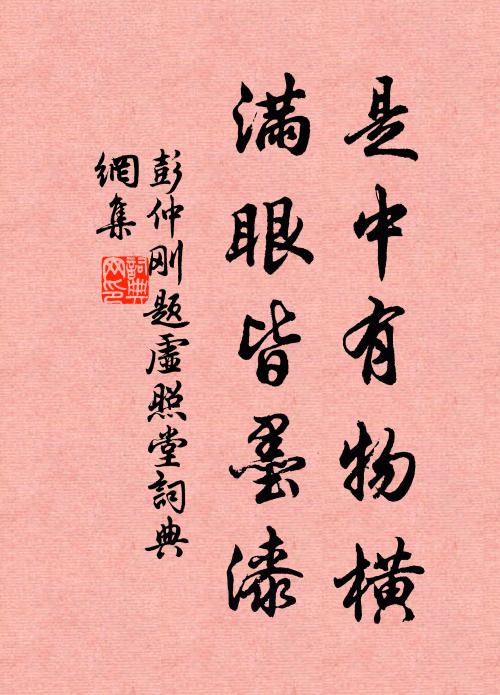 是中有物橫
滿眼皆墨漆
彭仲刚題虛照堂詞典
網集
詞典
网印